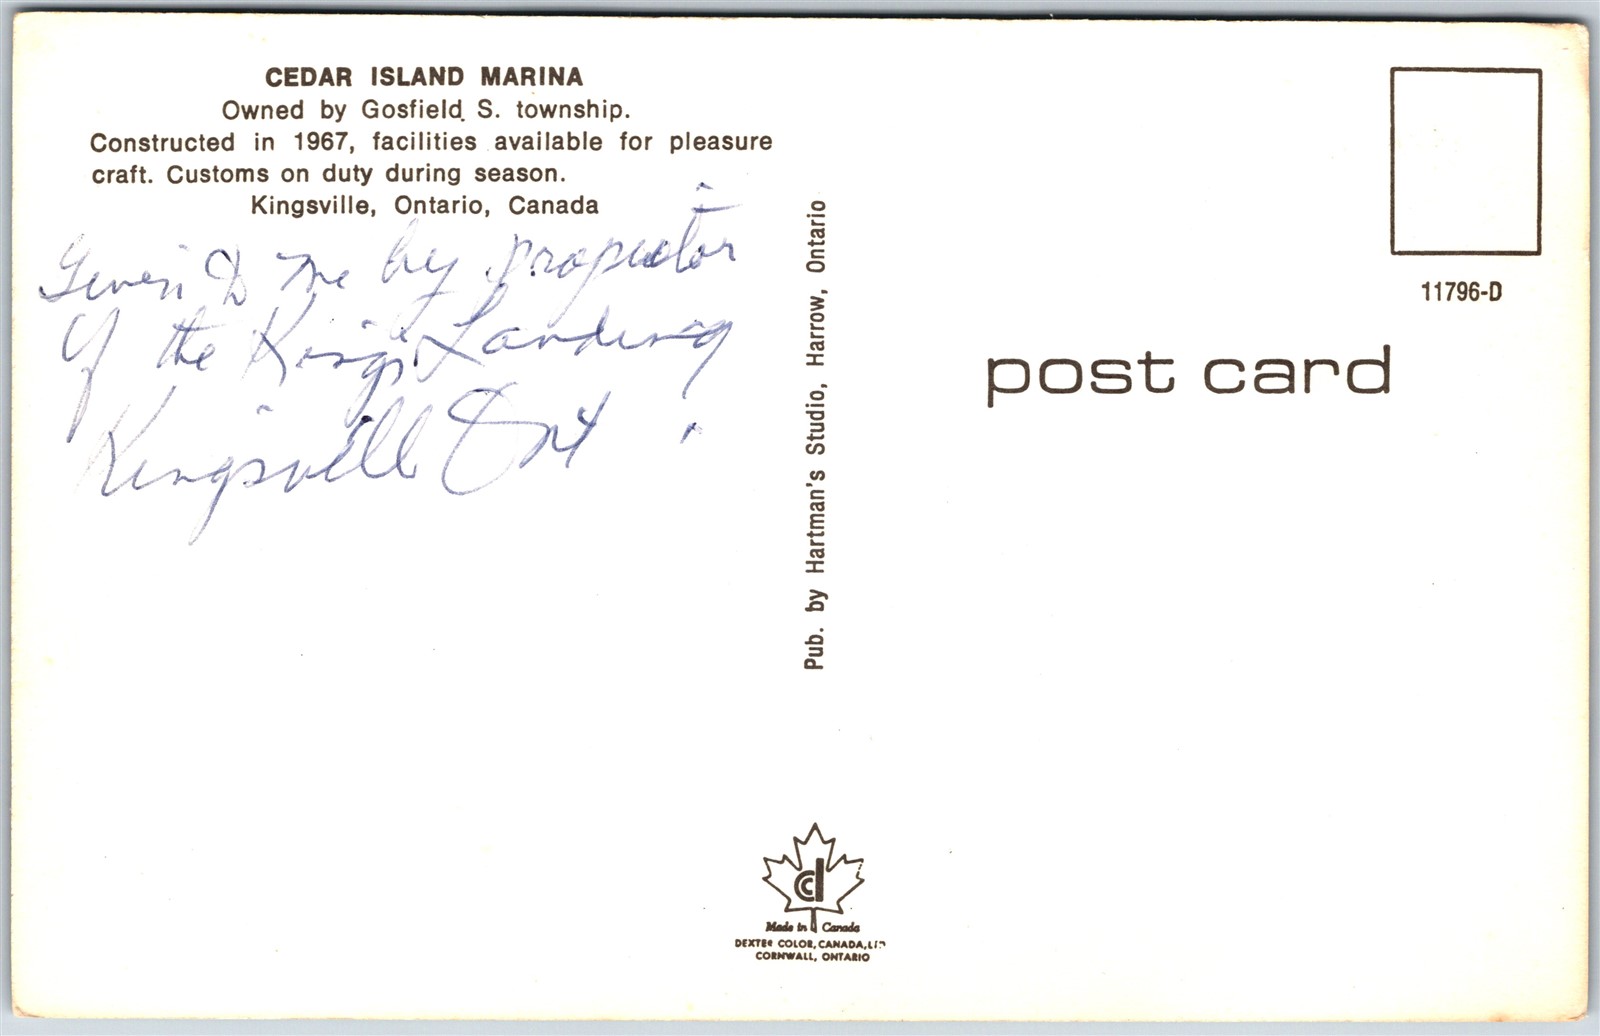 CEDAR ISLAND MARINA
Owned by Gosfield S. township.
Constructed in 1967, facilities available for pleasure
craft. Customs on duty during season.
Kingsville, Ontario, Canada
Given to me by propietor
of the King's Landing
Kingsvill Ont
Pub. by Hartman's Studio, Harrow, Ontario
11796-D
post card
Made in Canada
DEXTER COLOR, CANADA, LTD
CORNWALL, ONTARIO